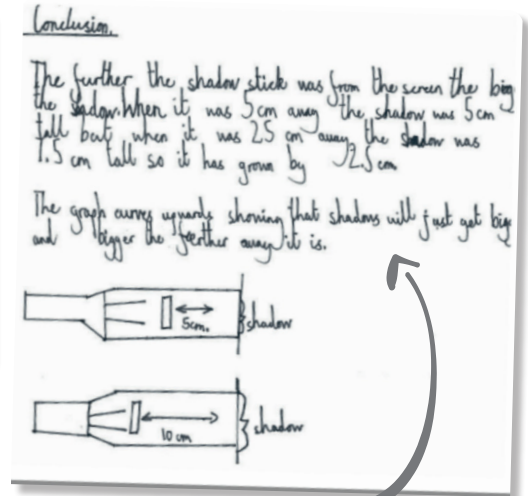 Conclusion.
The further the shadow stick was from the screen the big
the shadow. When it was 5cm away the shadow was 5cm
tall but when it was 25 cm away the shadow was
7.5 cm tall so it has grown by 2.5 cm.
The graph curves upwards showing that shadows will just get big
and bigger the further away it is.
5cm.
shadow
10 cm
shadow